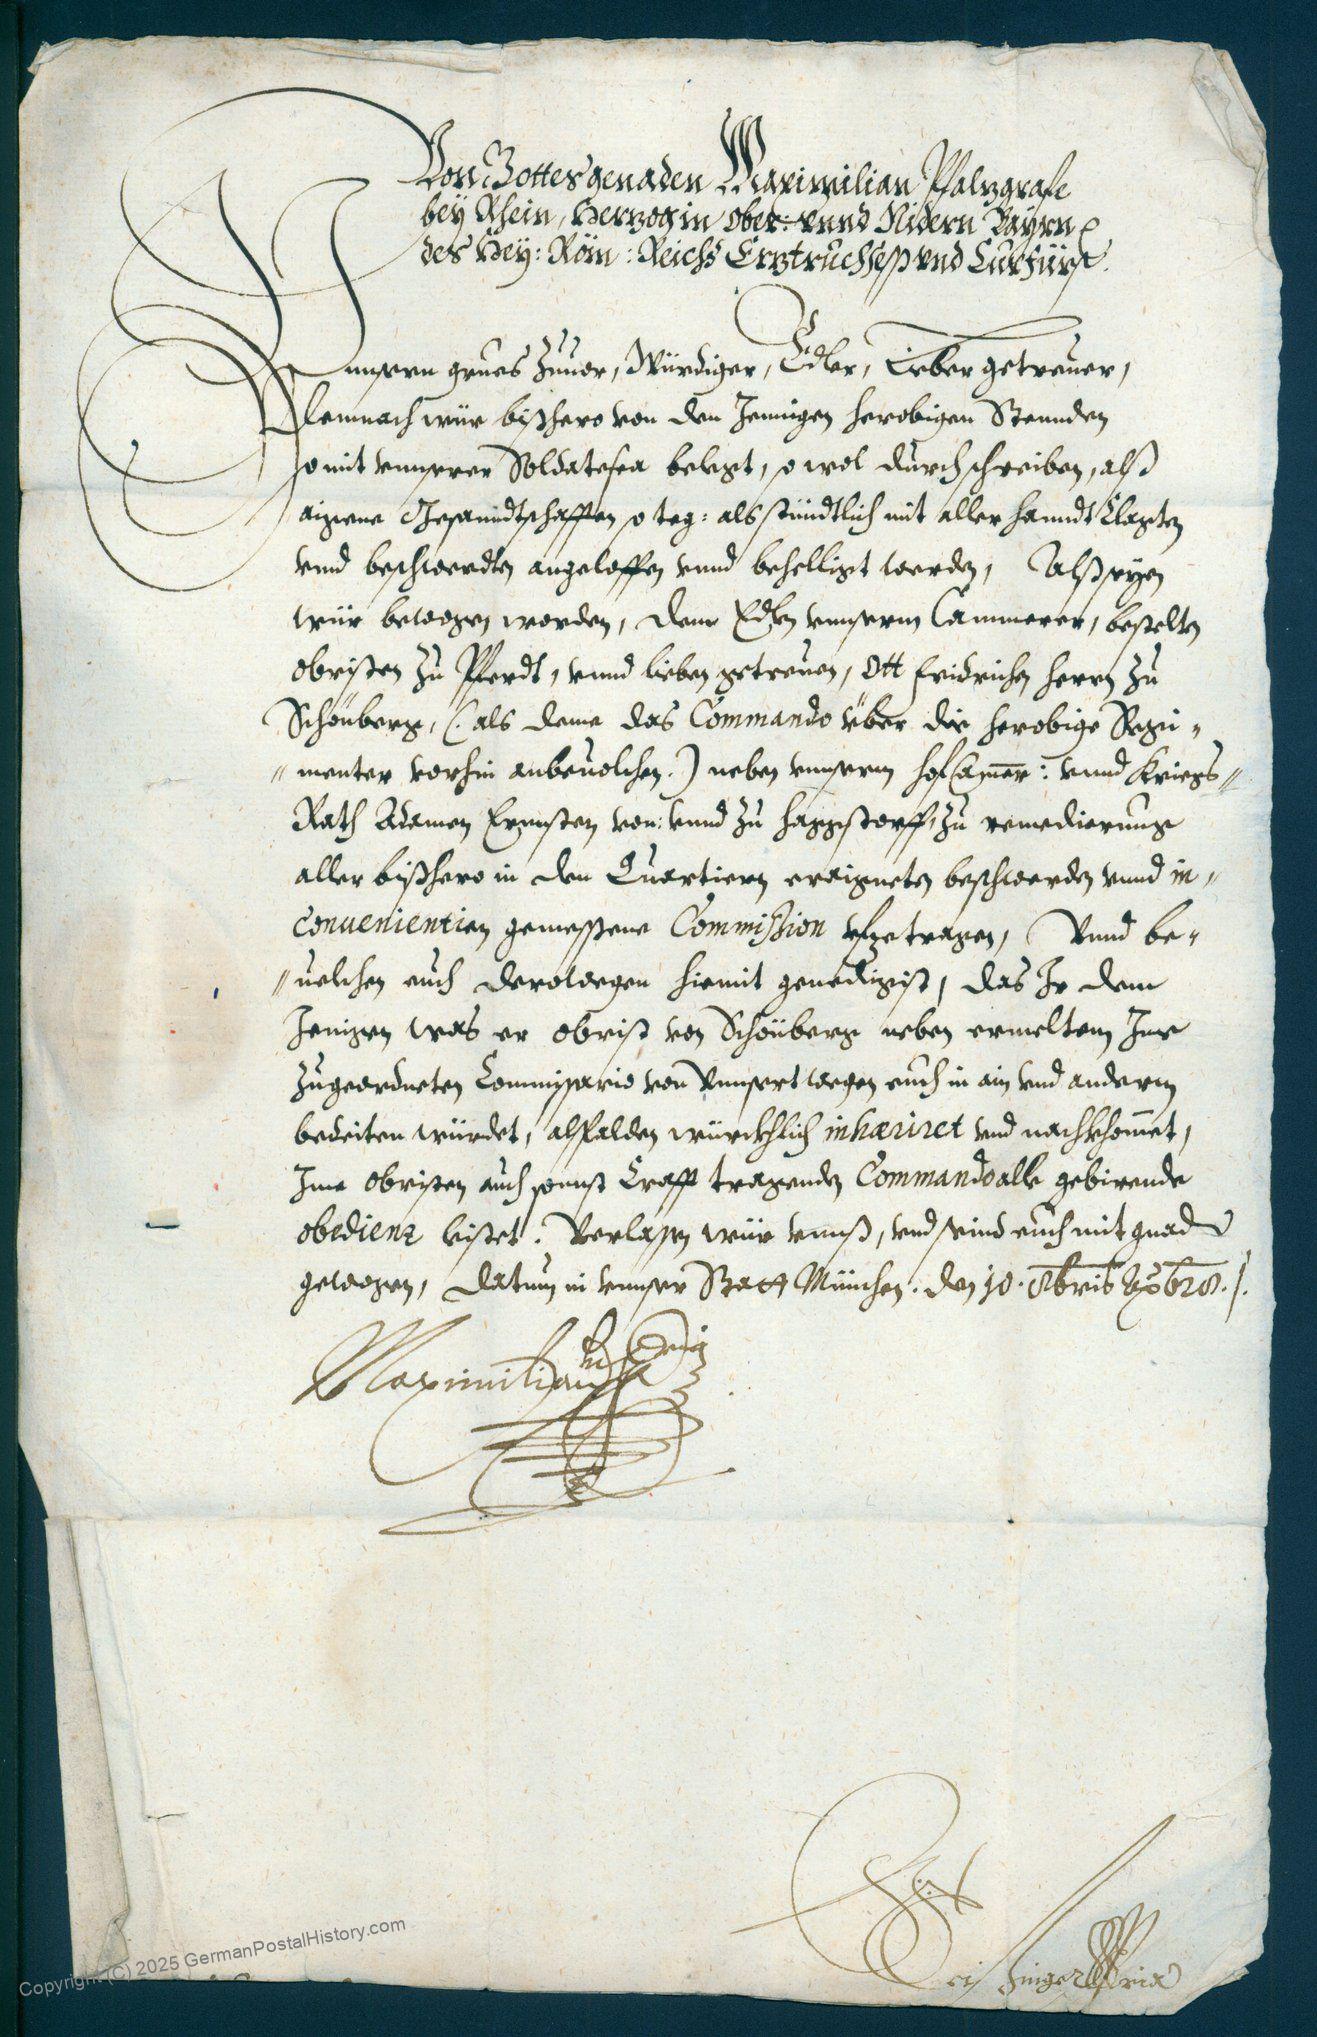 Von Gottes genaden Maximilian Pfalzgrafe
bey Rhein, Herzog in Ober: vnnd Nidern Bayrn
des Hey: Röm: Reichs Erztruchseß vnd Curfürst.
Vnnsern grues Zuuor, Würdiger, Edler, Lieber getreuer,
Demnach wür bißhero von den Jennigen herobigen Stennden
so mit vnnserer Soldatesca belegt, so wol durch schreiben, alß
aigene Gesanndtschafften so teg: als stündtlich mit aller hanndt Clagten
vnnd beschwerdten angeloffen vnnd behelligt werden, Alß seyen
wür bewogen worden, dem Edlen vnnserm Cammerer, bestelten
obristen zu Pferdt, vnnd lieben getreuen, Ott Fridrichen Herrn zu
Schönberg, (als deme das Commando über die herobige Regi„
„menter vorhin anbeuolchen.) neben vnnserm HofCamer: vnnd Kriegs„
Rath Adamen Ernnsten von: vnnd zu Haggstorff, zu remedierung
aller bißhero in den Quartiern eraigneten beschwerden vnnd in„
conuenientien gemessene Commission vfzetragen, Vnnd be„
„uelchen euch derowegen hiemit genedigist, das Jr dem
Jenigen was er obrist von Schönberg neben ermeltem Jme
zugeordneten Commissario von Vnnsert wegen euch in ain vnd anderm
bedeiten würdet, alßbalden würckhlich inhæriret vnd nachkhomet,
Jme obristen auch sonnst Crafft tragenden Commando alle gebirende
obedienz laistet. Verlassen wür vnnß, vnd seind euch mit gnad
gewogen, Datum in vnnser Statt München. den 10. 8bris Ao 628.
Maximilian
Copyright (C) 2025 GermanPostalHistory.com